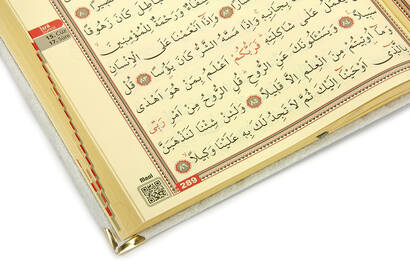 طِلَ كَانَ زَهُوقًا
وَرَحْمَةٌ لِلْمُؤْمِنِينَ
وَاِذَٓا اَنْعَمْنَا عَلَى الْاِنْسَانِ
بِجَانِبِهِ وَاِذَا مَسَّهُ الشَّرُّ كَانَ يَؤُسًا ﴿٨٣﴾ قُلْ
يَعْمَلُ عَلٰى شَاكِلَتِهِ فَرَبُّكُمْ اَعْلَمُ بِمَنْ هُوَ اَهْدٰى
﴿٨٤﴾ وَيَسْـَٔلُونَكَ عَنِ الرُّوحِ قُلِ الرُّوحُ مِنْ اَمْرِ رَبِّى
وَمَٓا اُوتِيتُمْ مِنَ الْعِلْمِ اِلَّا قَلِيلًا ﴿٨٥﴾ وَلَئِنْ شِئْنَا لَنَذْهَبَنَّ
بِالَّذِٓى اَوْحَيْنَٓا اِلَيْكَ ثُمَّ لَا تَجِدُ لَكَ بِهِ عَلَيْنَا وَكِيلًا ﴿٨٦﴾
15. Cüz
17. Sure
Meal
289